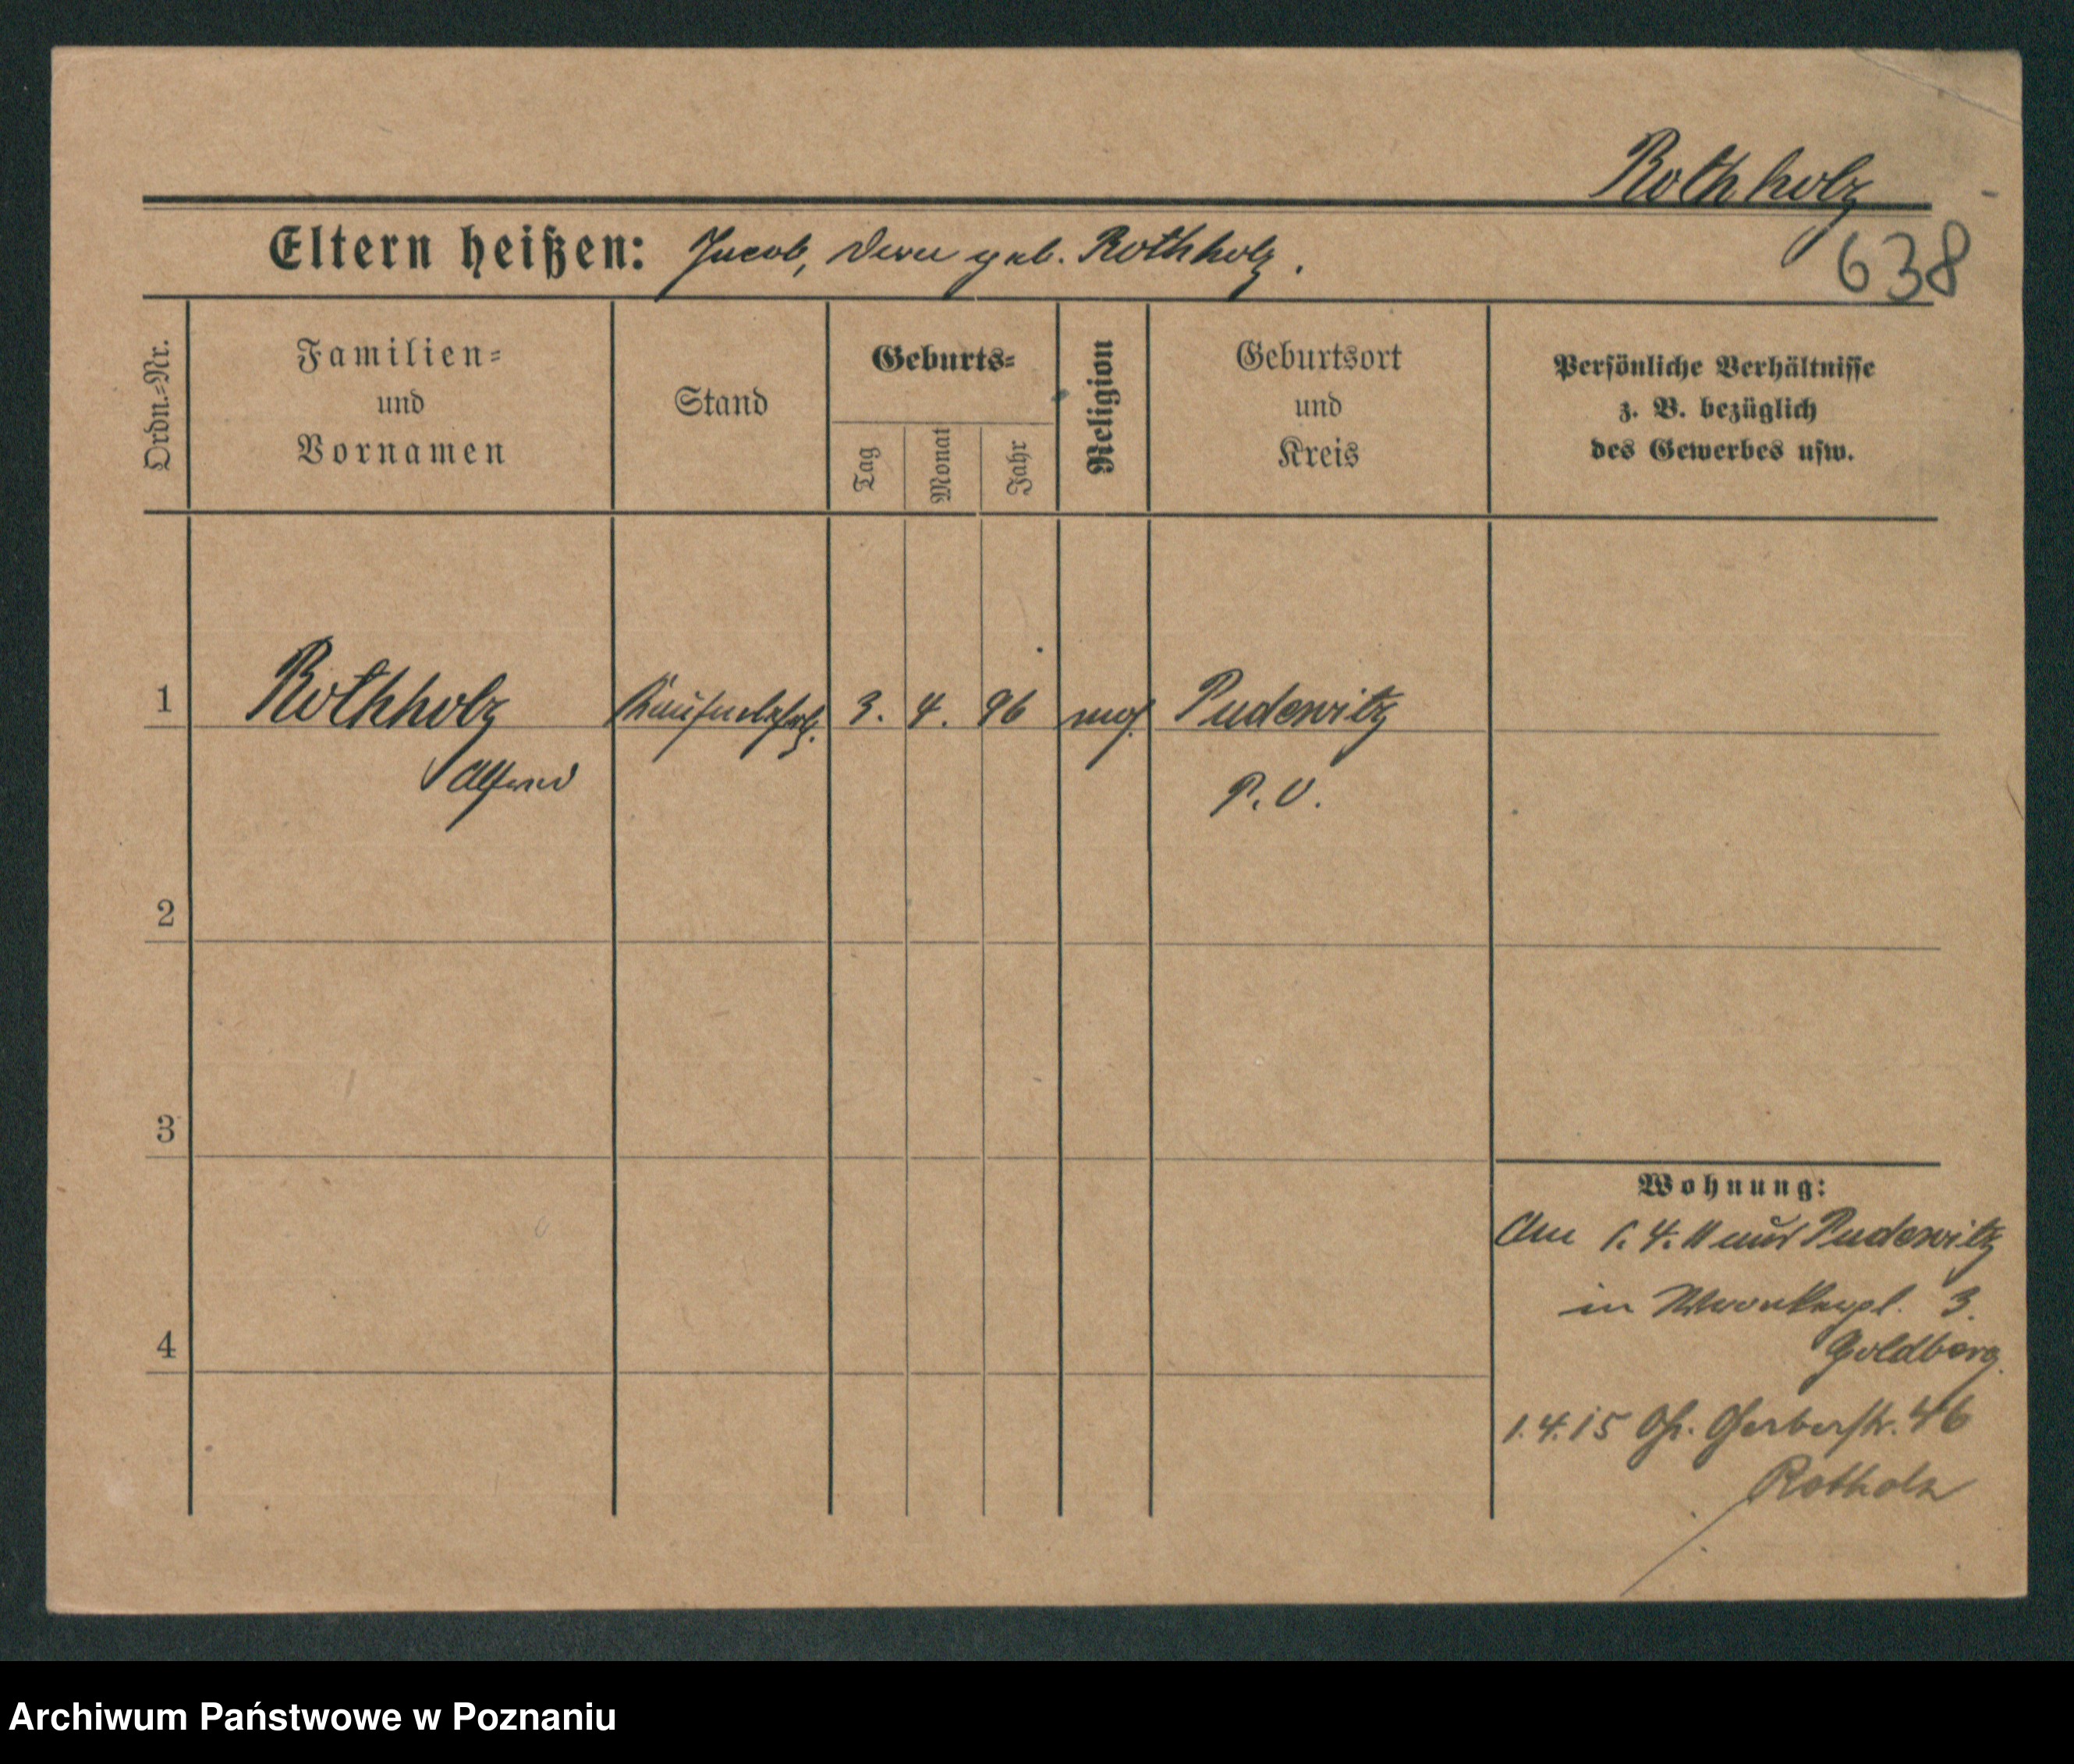 Rothholz
638
Eltern heißen: Jacob, Dora geb. Rothholz.
Ordn.-Nr.
Familien-
und
Vornamen
Stand
Geburts-
Tag
Monat
Jahr
Religion
Geburtsort
und
Kreis
Persönliche Verhältnisse
z. B. bezüglich
des Gewerbes usw.
1 Rothholz 3. 4. 96 mos. Pudewitz
Alfred P. O.
2
3
4
Wohnung:
Am 1. 4. 11 aus Pudewitz
in 3.
Goldberg
1. 4. 15 Gr. Gerberstr. 46
Rotholz
Archiwum Państwowe w Poznaniu